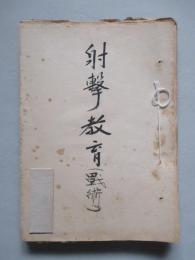 射擊教育(戰術)